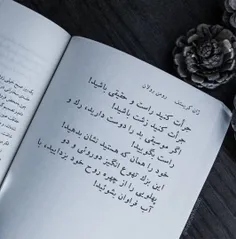 ژان کریستف    رومن رولان
جرأت کنید راست و حقیقی باشید!
جرأت کنید زشت باشید!
اگر موسیقی بد را دوست دارید، رک و
راست بگویید!
خود را همان که هستید نشان بدهید!
این بزک تهوع انگیز دوروئی و دو
پهلویی را از چهره روح خود بزدایید، با
آب فراوان بشوئید!